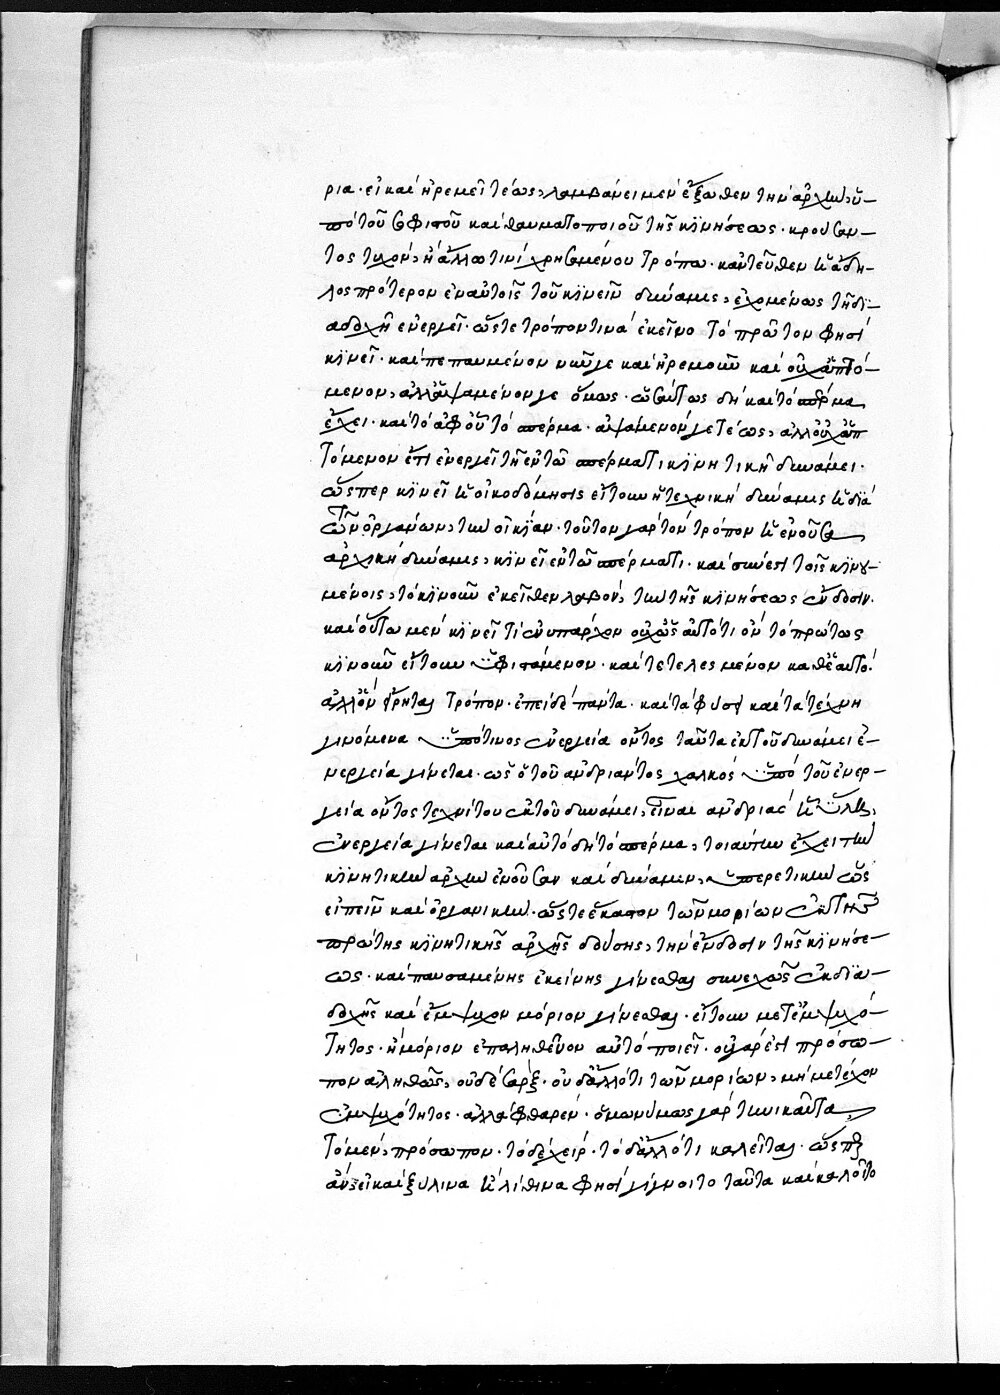 ρια· εἰ καὶ ἠρεμεῖ τέως, λαμβάνει μὲν ἔξωθεν τὴν ἀρχὴν ὑ-
πὸ τοῦ σοφιστοῦ καὶ θαυματοποιοῦ τῆς κινήσεως· κρούσαν-
τος τυχὸν, ἢ ἄλλω τινὶ χρησαμένου τρόπω· κἀντεῦθεν ἡ ἄδη-
λος πρότερον ἐν αὐτοῖς τοῦ κινεῖν δύναμις, ἐχομένως τῆ δι-
αδοχῆ ἐνεργεῖ· ὥστε τρόπον τινὰ ἐκεῖνο τὸ πρῶτον φησὶ
κινεῖ· καὶ πεπαυμένον νῦν γε καὶ ἠρεμοῦν καὶ οὐχ ἁπτό-
μενον, ἀλλ' ἁψάμενον γε ὅμως· ὡσαύτως δὴ καὶ τὸ σπέρμα
ἔχει· καὶ τὸ ἀφ' οὗ τὸ σπέρμα· ἁψάμενόν γε τέως, ἀλλ' οὐχ ἁπ
τόμενον ἔτι ἐνεργεῖ τῆ ἐν τῶ σπέρματι κινητικῆ δυνάμει·
ὥσπερ κινεῖ ἡ οἰκοδόμησις εἴτουν ἡ τεχνικὴ δύναμις ἡ διὰ
τῶν ὀργάνων, τὴν οἰκίαν· τοῦτον γὰρ τὸν τρόπον ἡ ἐνοῦσα
ἀρχικὴ δύναμις, κινεῖ ἐν τῶ σπέρματι· καὶ σύνεστι τοῖς κινου-
μένοις, τὸ κινοῦν ἐκεῖθεν λαβὸν, τὴν τῆς κινήσεως ἔνδοσιν·
καὶ οὕτω μὲν κινεῖ τὶ ἐνυπάρχον οὐχ ὡς αὐτό τι ὂν τὸ πρώτως
κινοῦν εἴτουν ὑφιστάμενον· καὶ τετελεσμένον καθ' ἑαυτό·
ἀλλ' ὃν εἴρηται τρόπον· ἐπειδὲ πάντα· καὶ τὰ φύσει καὶ τὰ τέχνη
γινόμενα ὑπό τινος ἐνεργεία ὄντος ταῦτα ἐκ τοῦ δυνάμει ἐ-
νεργεία γίνεται· ὡς ὁ τοῦ ἀνδριάντος χαλκὸς ὑπὸ τοῦ ἐνερ-
γεία ὄντος τεχνίτου ἐκ τοῦ δυνάμει, εἶναι ἀνδριὰς ἡ ὕλη,
ἐνεργεία γίνεται καὶ αὐτὸ δὴ τὸ σπέρμα, τοιαύτην ἔχει τὴν
κινητικὴν ἀρχὴν ἐνοῦσαν καὶ δύναμιν, ὑπερετικὴν ὡς
εἰπεῖν καὶ ὀργανικήν· ὥστε ἕκαστον τῶν μορίων ἐκ τῆς
πρώτης κινητικῆς ἀρχῆς δούσης, τὴν ἔνδοσιν τῆς κινήσε-
ως· καὶ παυσαμένης ἐκείνης γίνεσθαι συνεχῶς ἐκ δια-
δοχῆς καὶ ἔμψυχον μόριον γίνεσθαι· εἴτουν μετ' ἐμψυχό-
τητος· ἢ μόριον ἐπαληθεῦον αὐτὸ ποιεῖ· οὐ γάρ ἐστι πρόσω-
πον ἀληθῶς, οὐδὲ σάρξ· οὐδ' ἄλλό τι τῶν μορίων, μὴ μετέχον
ἐμψυχότητος· ἀλλὰ φθαρέν· ὁμωνύμως γὰρ τηνικαῦτα
τὸ μὲν, πρόσωπον· τὸ δὲ χείρ· τὸ δ' ἄλλό τι καλεῖται· ὥσπερ
ἂν εἰ καὶ ξύλινα ἢ λίθινα φησὶ γίγνοιτο ταῦτα καὶ καλοῖτο